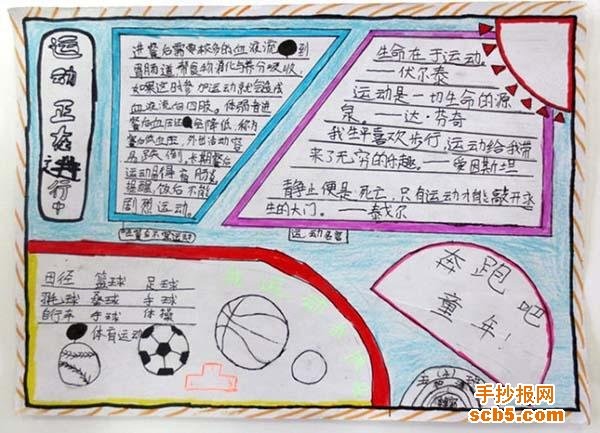 运动正在进行中
进餐后需要较多的血液流到
胃肠道，帮食物消化与养分吸收，
如果这时参加运动就会造成
血液流向四肢。体弱者进
餐后血压 会降低，称为
餐后低血压，外出活动容
易跌倒。长期餐后
运动
提醒，饭后不能
剧烈运动。
生命在于运动。
——伏尔泰
运动是一切生命的源
泉。——达·芬奇
我生平喜欢步行，运动给我带
来了无穷的乐趣。——爱因斯坦
静止便是死亡，只有运动才能敲开永
生的大门。——泰戈尔
吃餐后不宜运动
运动名言
田径 篮球 足球
排球 垒球 手球
自行车 手球 体操
体育运动
奔跑吧
童年！
手抄报网
scb5.com